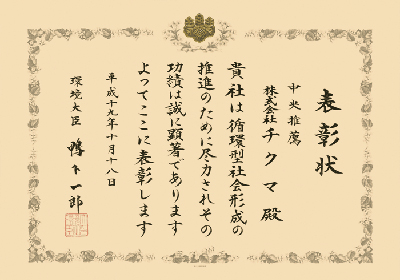 表彰状
中央推薦
株式会社チクマ殿
貴社は循環型社会形成の
推進のために尽力されその
功績は誠に顕著であります
よってここに表彰します
平成十九年十月十八日
環境大臣 鴨下一郎